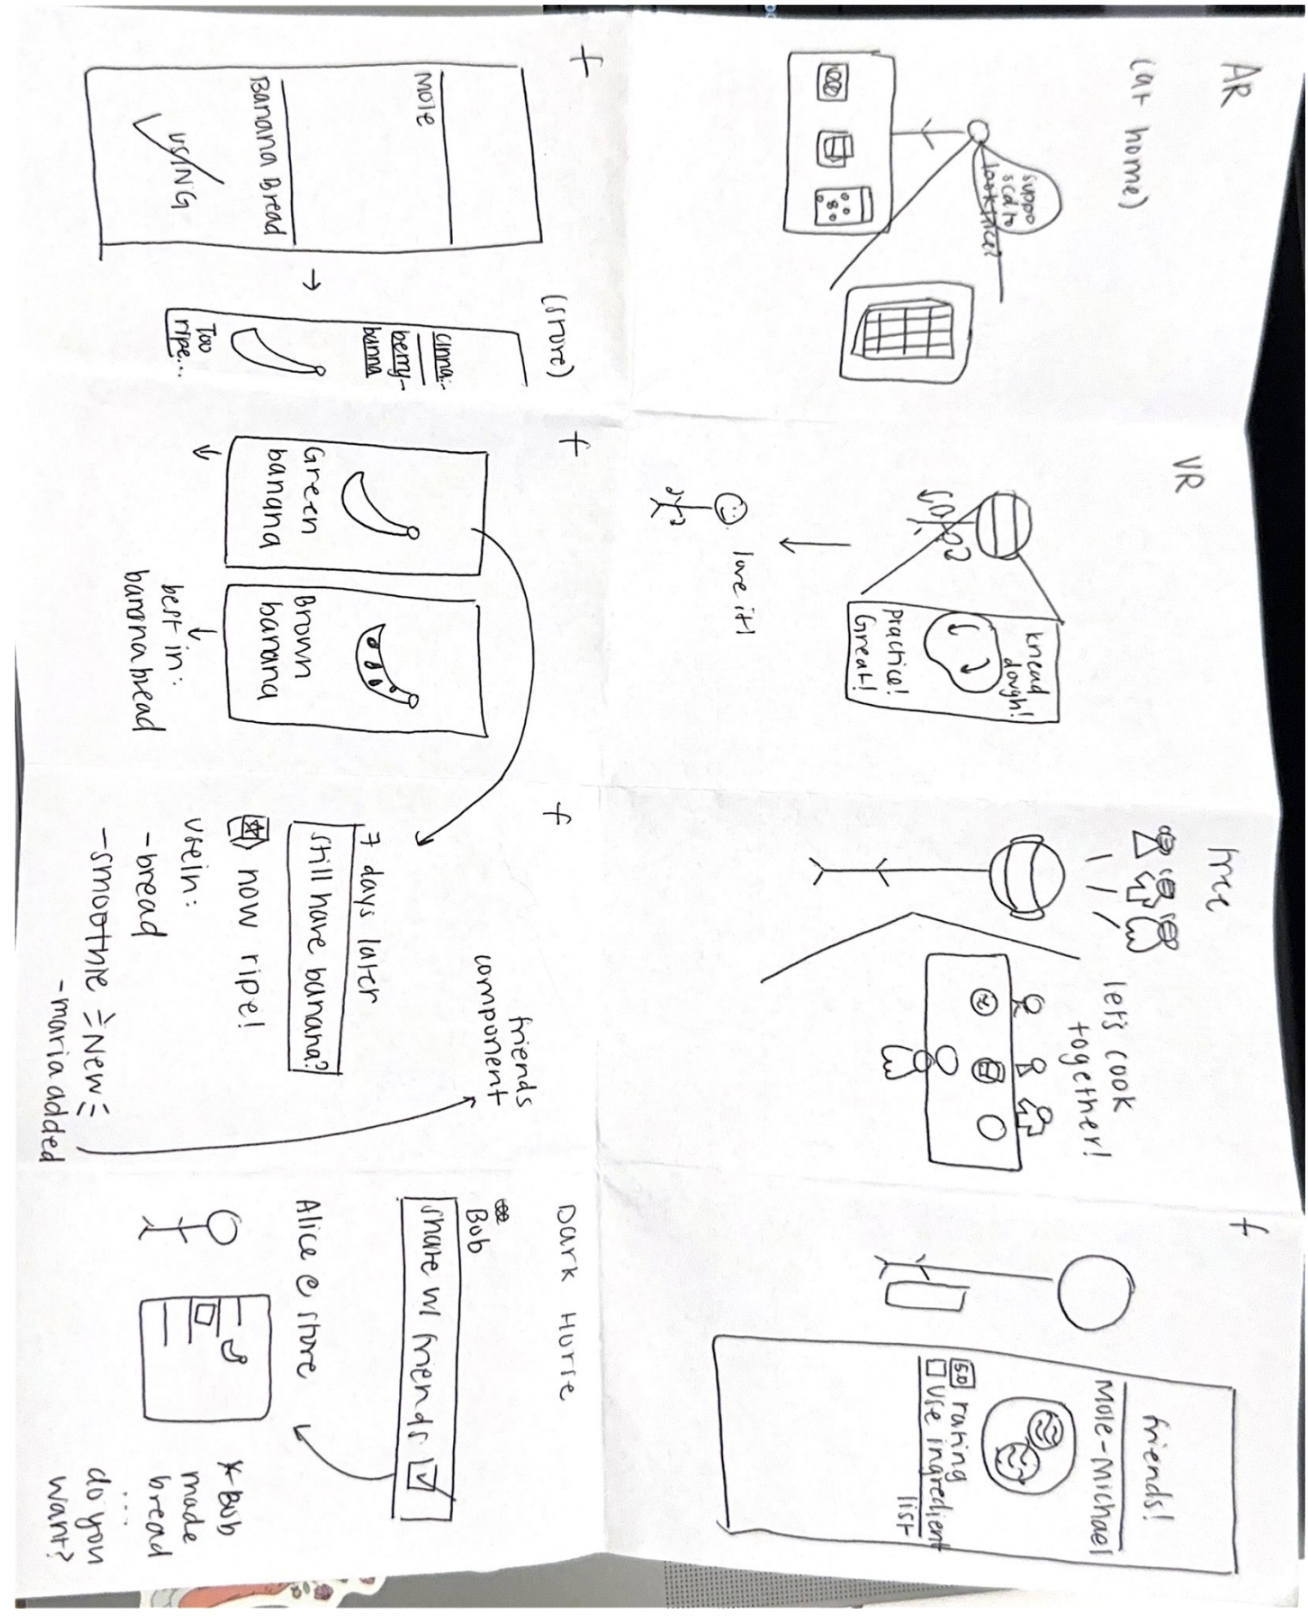 AR
(at home)
suppo
sed to
look like?
VR
knead
dough!
practice!
Great!
love it!
free
let's cook
together!
f
friends!
Mole-Michael
5.0 rating
use ingredient
list
f
(store)
Mole
Banana Bread
USING
cinna-
berry-
banna
Too
ripe...
f
Green
banana
Brown
banana
best in:
banana bread
f
friends
component
7 days later
still have banana?
now ripe!
use in:
- bread
- smoothie NEW
- maria added
Dark Horse
Bob
share w/ friends
Alice @ store
* Bob
made
bread
...
do you
want?